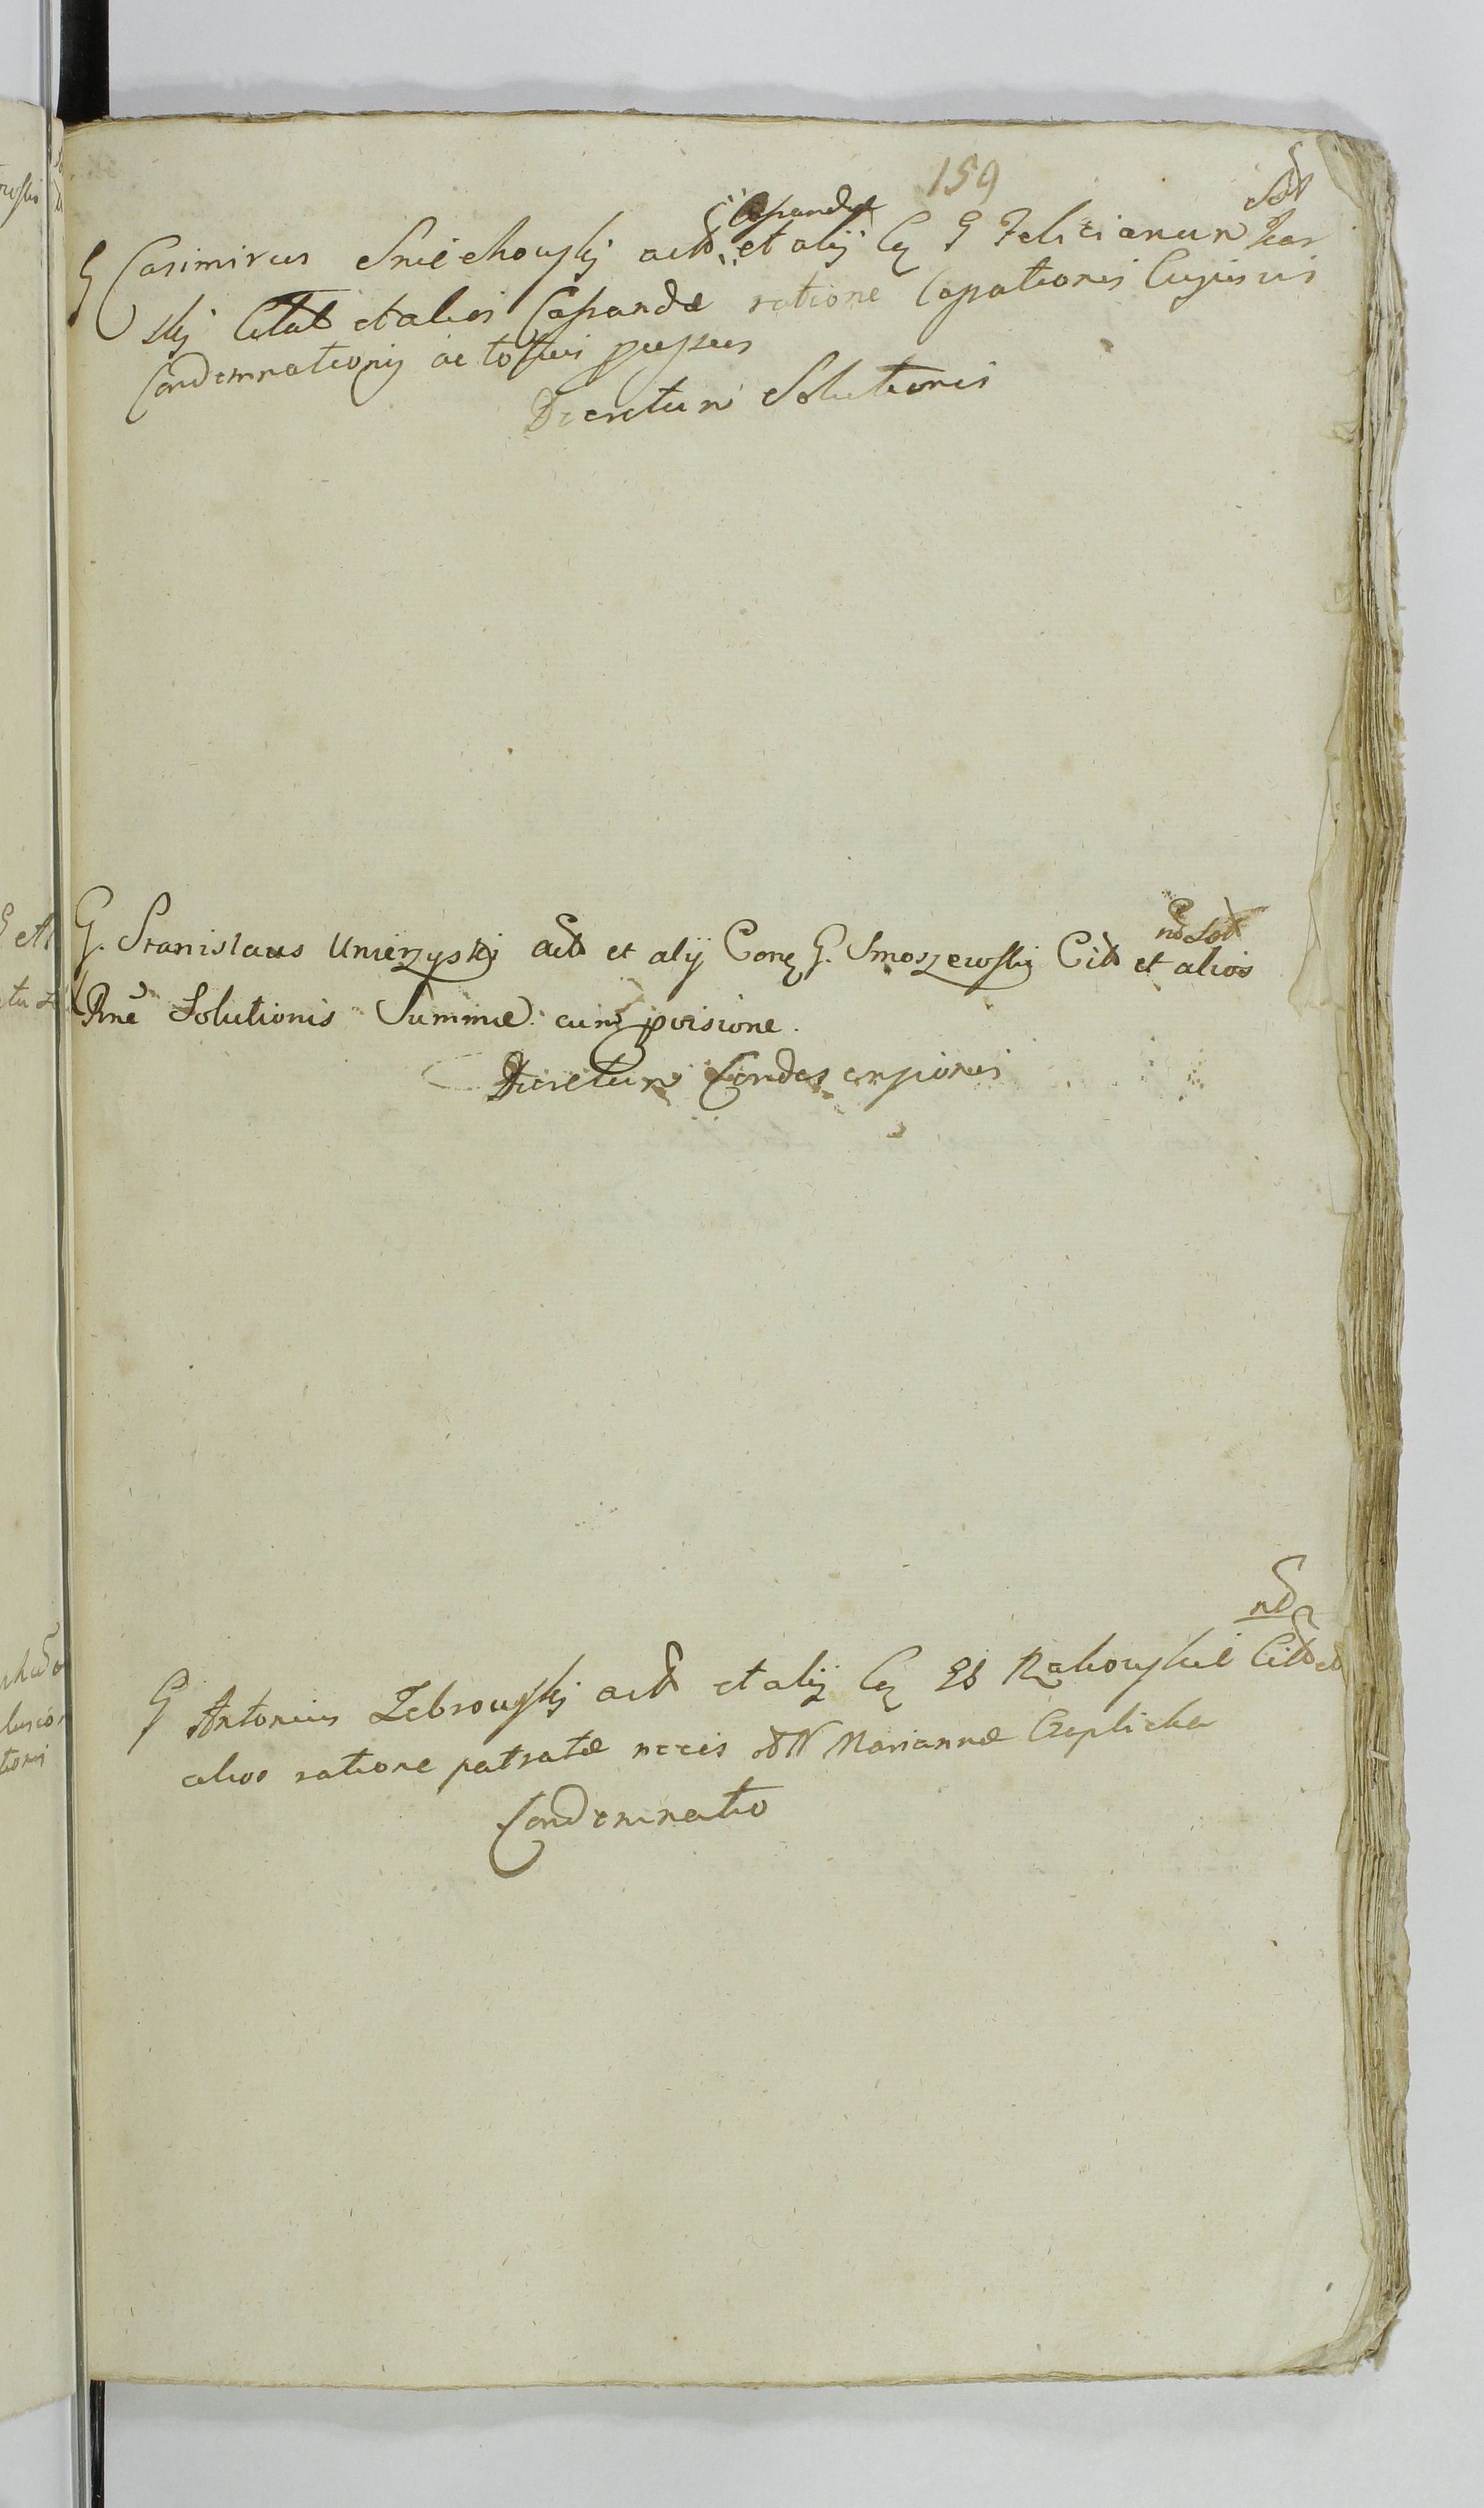 159
Sol
Casandæ
G Casimirus Sniechowskj actor et alij Cq G Felicianum
skj Citat et alios Casandæ ratione Casationis Cujusvis
Condemnationis ac totius processus
Decretum Solutionis
nd Sol
G. Stanislaus Umierzyskj act et alij Conq G. Smoszewskj Cit et alios
Rne Solutionis Summæ cum provisione.
Decretum Condescensionis
nd
G Antonius Zebrowskj act et alij Cq GG Rakowskie Cit et
alios ratione patratæ necis Mariannæ Czeplicka
Condemnatio